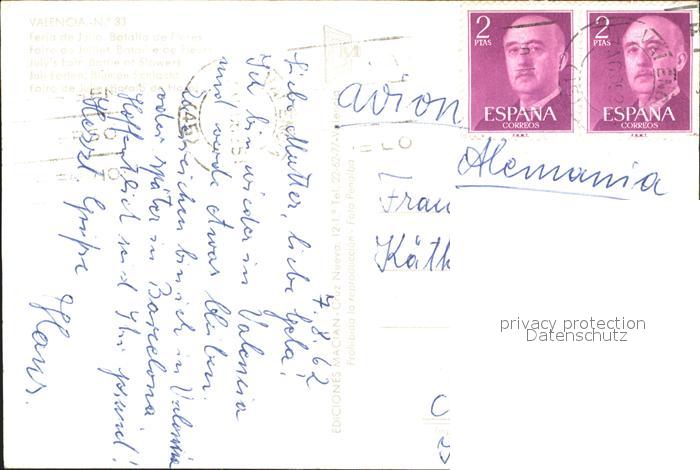 VALENCIA.-N.º 83
Feria de Julio. Batalla de Flores
Foire de Juillet. Bataille de Fleurs
July's Fair. Battle of Flowers
Juli-Ferien. Blumen-Schlacht
2
PTAS
ESPAÑA
CORREOS
F.N.M.T.
2
PTAS
ESPAÑA
CORREOS
F.N.M.T.
avion
Alemania
Frau
Käth
7.8.62
Liebe Mutter, liebe
Ich bin wieder in Valencia
und werde etwas bleiben.
bin ich in Valencia
oder später in Barcelona.
Hoffentlich seid Ihr gesund!
Herzl. Grüße
Hans.
EDICIONES
Prohibida la reproducción - Foto
privacy protection
Datenschutz